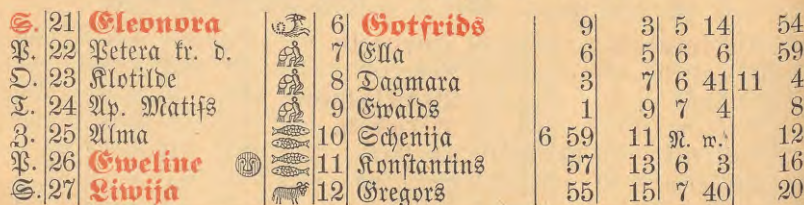 S. 21 Eleonora 6 Gotfrids 9 3 5 14 54
P. 22 Petera kr. d. 7 Ella 6 5 6 6 59
O. 23 Klotilde 8 Dagmara 3 7 6 41 11 4
T. 24 Ap. Matiſs 9 Ewalds 1 9 7 4 8
Z. 25 Alma 10 Schenija 6 59 11 N. w. 12
P. 26 Eweline 11 Konſtantins 57 13 6 3 16
S. 27 Liwija 12 Gregors 55 15 7 40 20